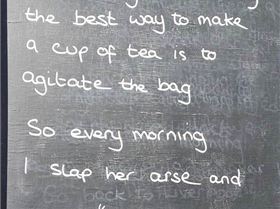 the best way to make
a cup of tea is to
agitate the bag
So every morning
I slap her arse and
"